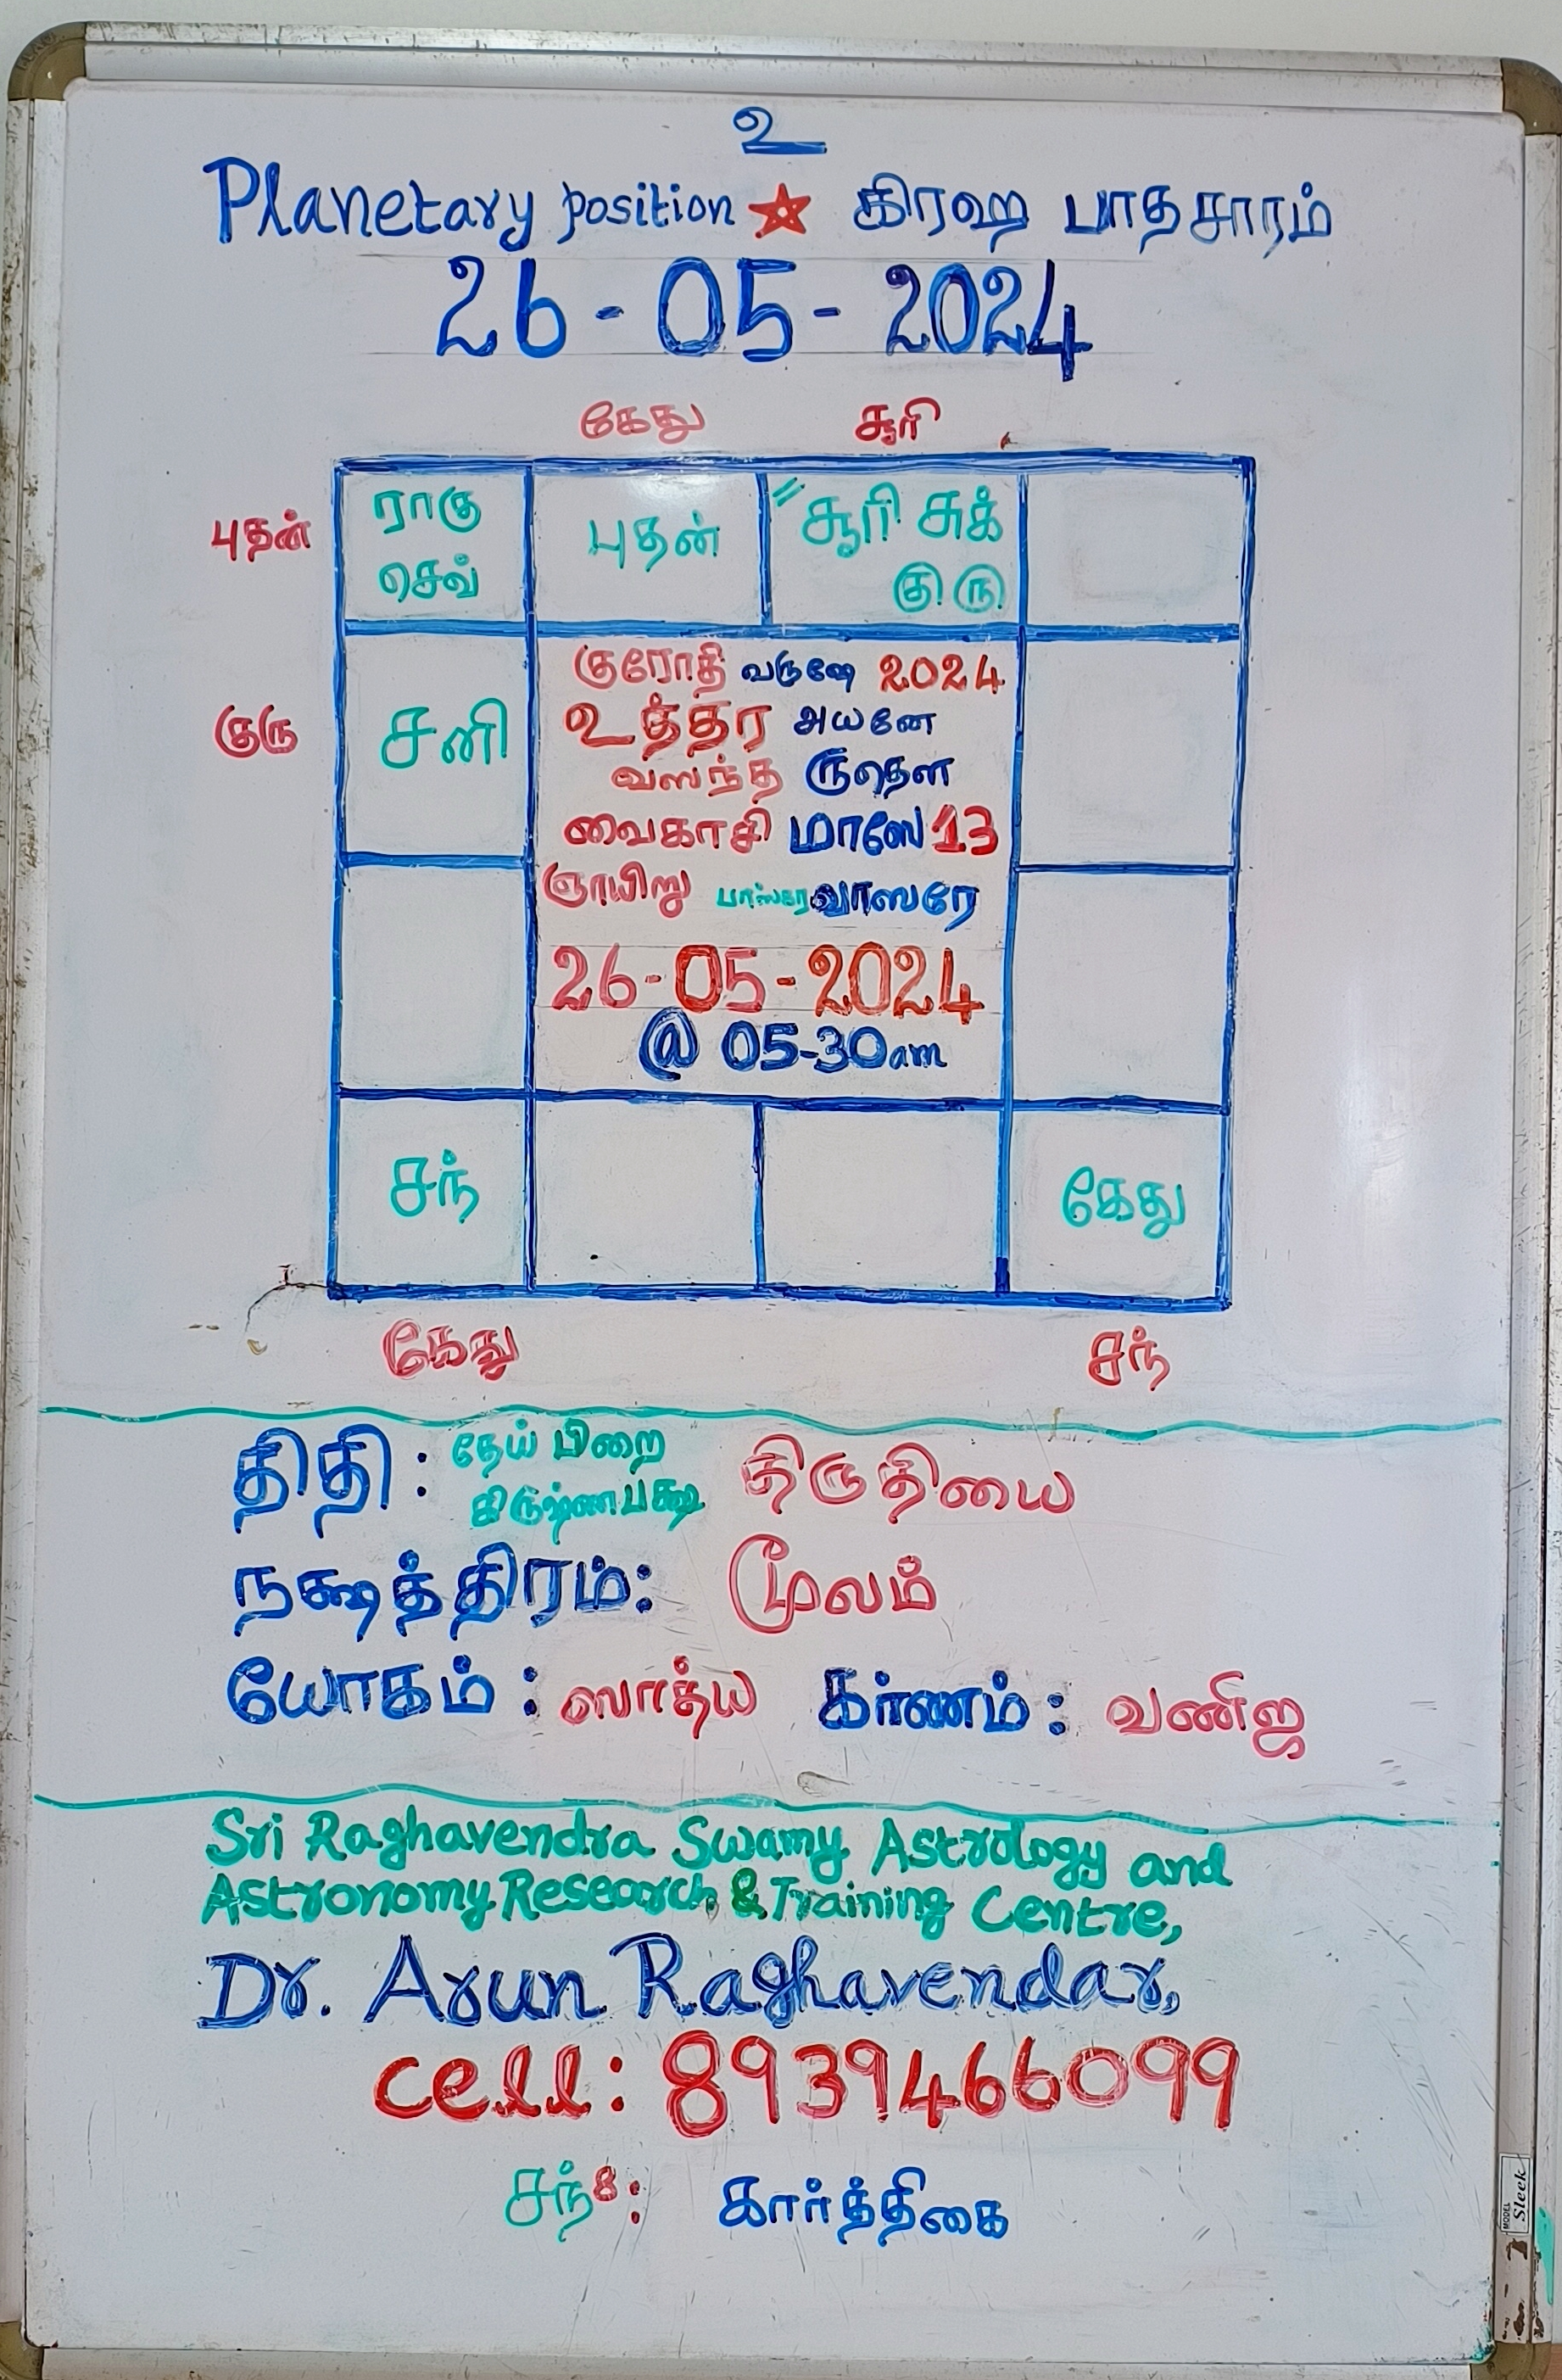 உ
Planetary position ★ கிரஹ பாதசாரம்
26 - 05 - 2024
கேது சூரி
புதன் ராகு செவ் புதன் " சூரி சுக் குரு
குரோதி வருஷே 2024
உத்தர அயனே
குரு சனி
வஸந்த ருதௌ
வைகாசி மாஸே 13
ஞாயிறு பாஸ்கர வாஸரே
26-05-2024
@ 05-30am
சந் கேது
கேது சந்
திதி : தேய் பிறை கிருஷ்ணபக்ஷ திருதியை
நக்ஷத்திரம்: மூலம்
யோகம் : ஸாத்ய கர்ணம் : வணிஜ
Sri Raghavendra Swamy Astrology and
Astronomy Research & Training Centre,
Dr. Arun Raghavendar,
cell: 8939466099
சந்8: கார்த்திகை
MODEL Sleek